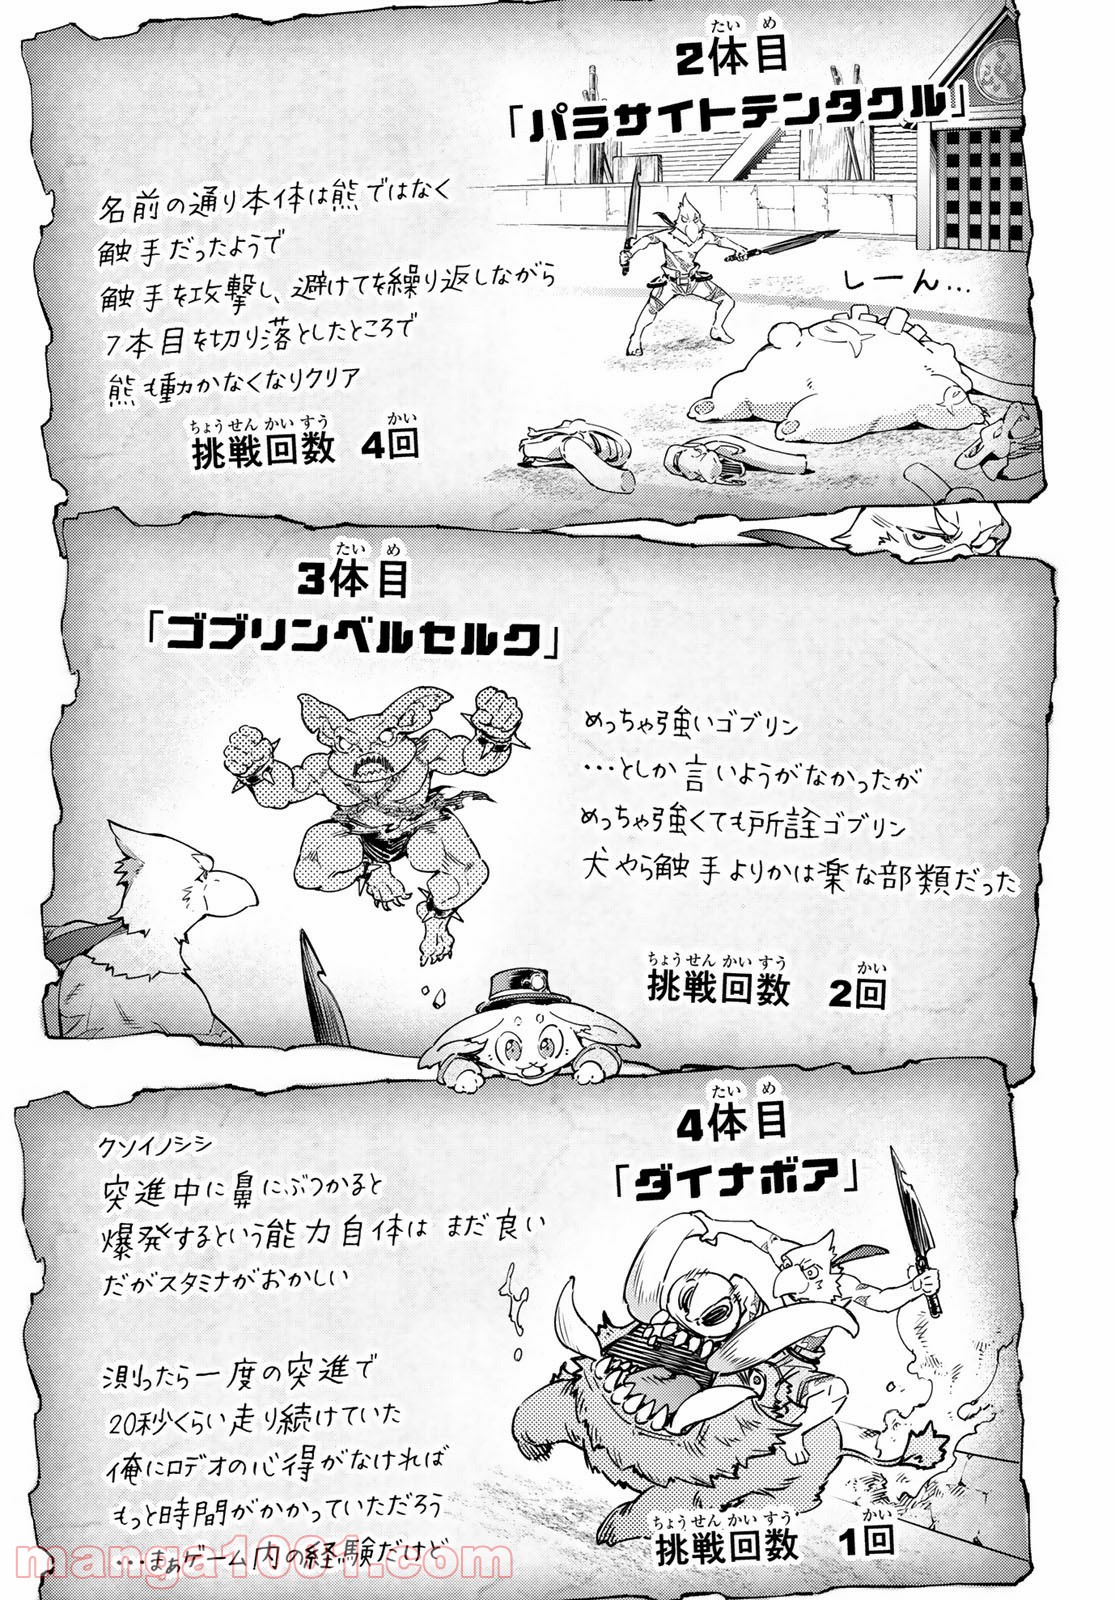 2体目
「パラサイトテンタクル」
名前の通り本体は熊ではなく
触手だったようで
触手を攻撃し、避けてを繰り返しながら
7本目を切り落としたところで
熊も動かなくなりクリア
しーん…
挑戦回数 4回
3体目
「ゴブリンベルセルク」
めっちゃ強いゴブリン
…としか言いようがなかったが
めっちゃ強くても所詮ゴブリン
犬やら触手よりかは楽な部類だった
挑戦回数 2回
4体目
「ダイナボア」
クソイノシシ
突進中に鼻にぶつかると
爆発するという能力自体はまだ良い
だがスタミナがおかしい
測ったら一度の突進で
20秒くらい走り続けていた
俺にロデオの心得がなければ
もっと時間がかかっていただろう
…まぁゲーム内の経験だけど
挑戦回数 1回
manga1001.com